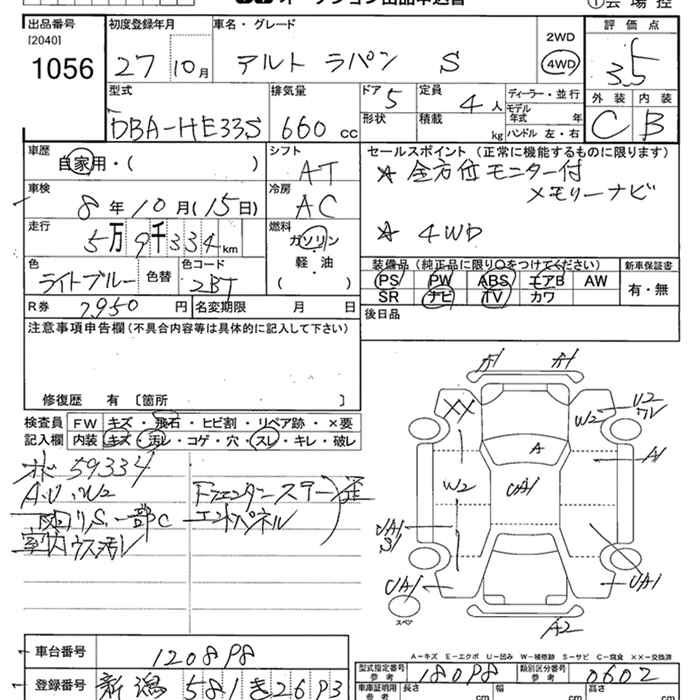 オークション出品申込書
①会場控
出品番号 [2040] 1056
初度登録年月 27 10月
車名・グレード アルト ラパン S
2WD
4WD
評価点 3.5
型式 DBA-HE33S
排気量 660 cc
ドア 5
形状
定員 4人
積載 kg
ディーラー・並行
モデル年式 年
ハンドル 左・右
外装 C
内装 B
車歴 自家用・( )
シフト AT
車検 8年10月(15日)
冷房 AC
走行 5万9千334km
燃料 ガソリン
軽・油
( )
色 ライトブルー 色替
色コード ZBT
R券 7,950円
名変期限 月 日
セールスポイント (正常に機能するものに限ります)
☆ 全方位モニター付
メモリーナビ
☆ 4WD
装備品 (純正品に限り○をつけてください)
新車保証書
PS PW ABS エアB AW
SR ナビ TV カワ
有・無
後日品
注意事項申告欄 (不具合内容等は具体的に記入して下さい)
修復歴 有 [箇所 ]
検査員記入欄
FW キズ・飛石・ヒビ割・リペア跡・×要
内装 キズ・汚レ・コゲ・穴・スレ・キレ・破レ
59334
A.U.W2
下回りS.一部C
室内ウス汚レ
FフェンダーステーS
エンドパネル
歪
A1 A1
XX
W2
U2
ワレ
A
A1
W2
UA1
UA1
S1
UA1
UA1
A2
スペア
A-キズ E-エクボ U-凹み W-補修跡 S-サビ C-腐食 XX-交換済
車台番号 120898
登録番号 新潟 581 き 2693
型式指定番号 参考 18098
類別区分番号 参考 0602
車庫証明用 参考
長さ cm
幅 cm
高さ cm